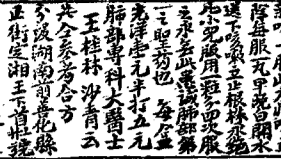 降每服一丸早晚白開水
送下咳嗽立止根株永絕
此小兒服用一粒分四次服
之永去此患誠肺部第
一之聖药也 每盒
光洋壹元半打五元
肺部專科大醫士
王桂林 沙青云
共仝參考合方
分设湖南前善化縣
正街定湘王下首